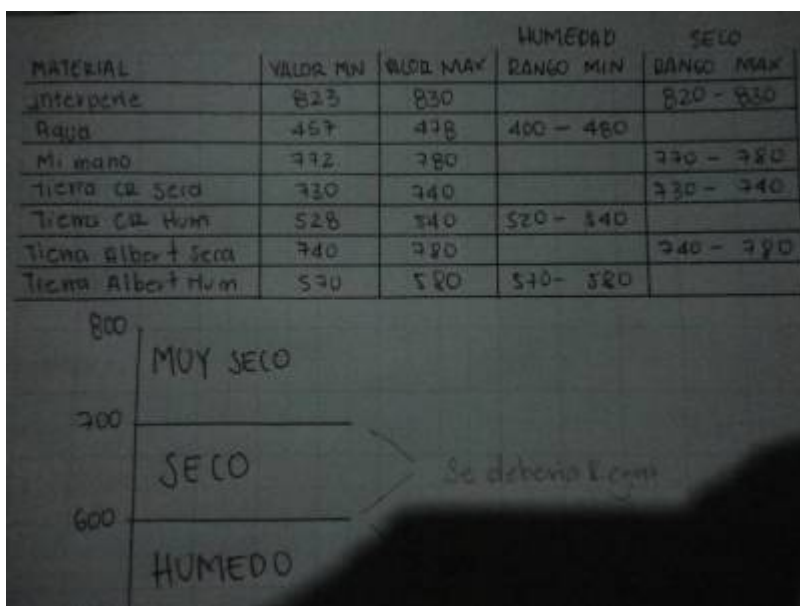 HUMEDAD SECO
MATERIAL VALOR MIN VALOR MAX RANGO MIN RANGO MAX
Interperie 823 830 820 - 830
Agua 457 478 400 - 480
Mi mano 772 780 770 - 780
Tierra CR Seca 730 740 730 - 740
Tierra CR Hum 528 540 520 - 540
Tierra Albert Seca 740 780 740 - 780
Tierra Albert Hum 570 580 570 - 580
800
MUY SECO
700
SECO
Se deberia
600
HUMEDO